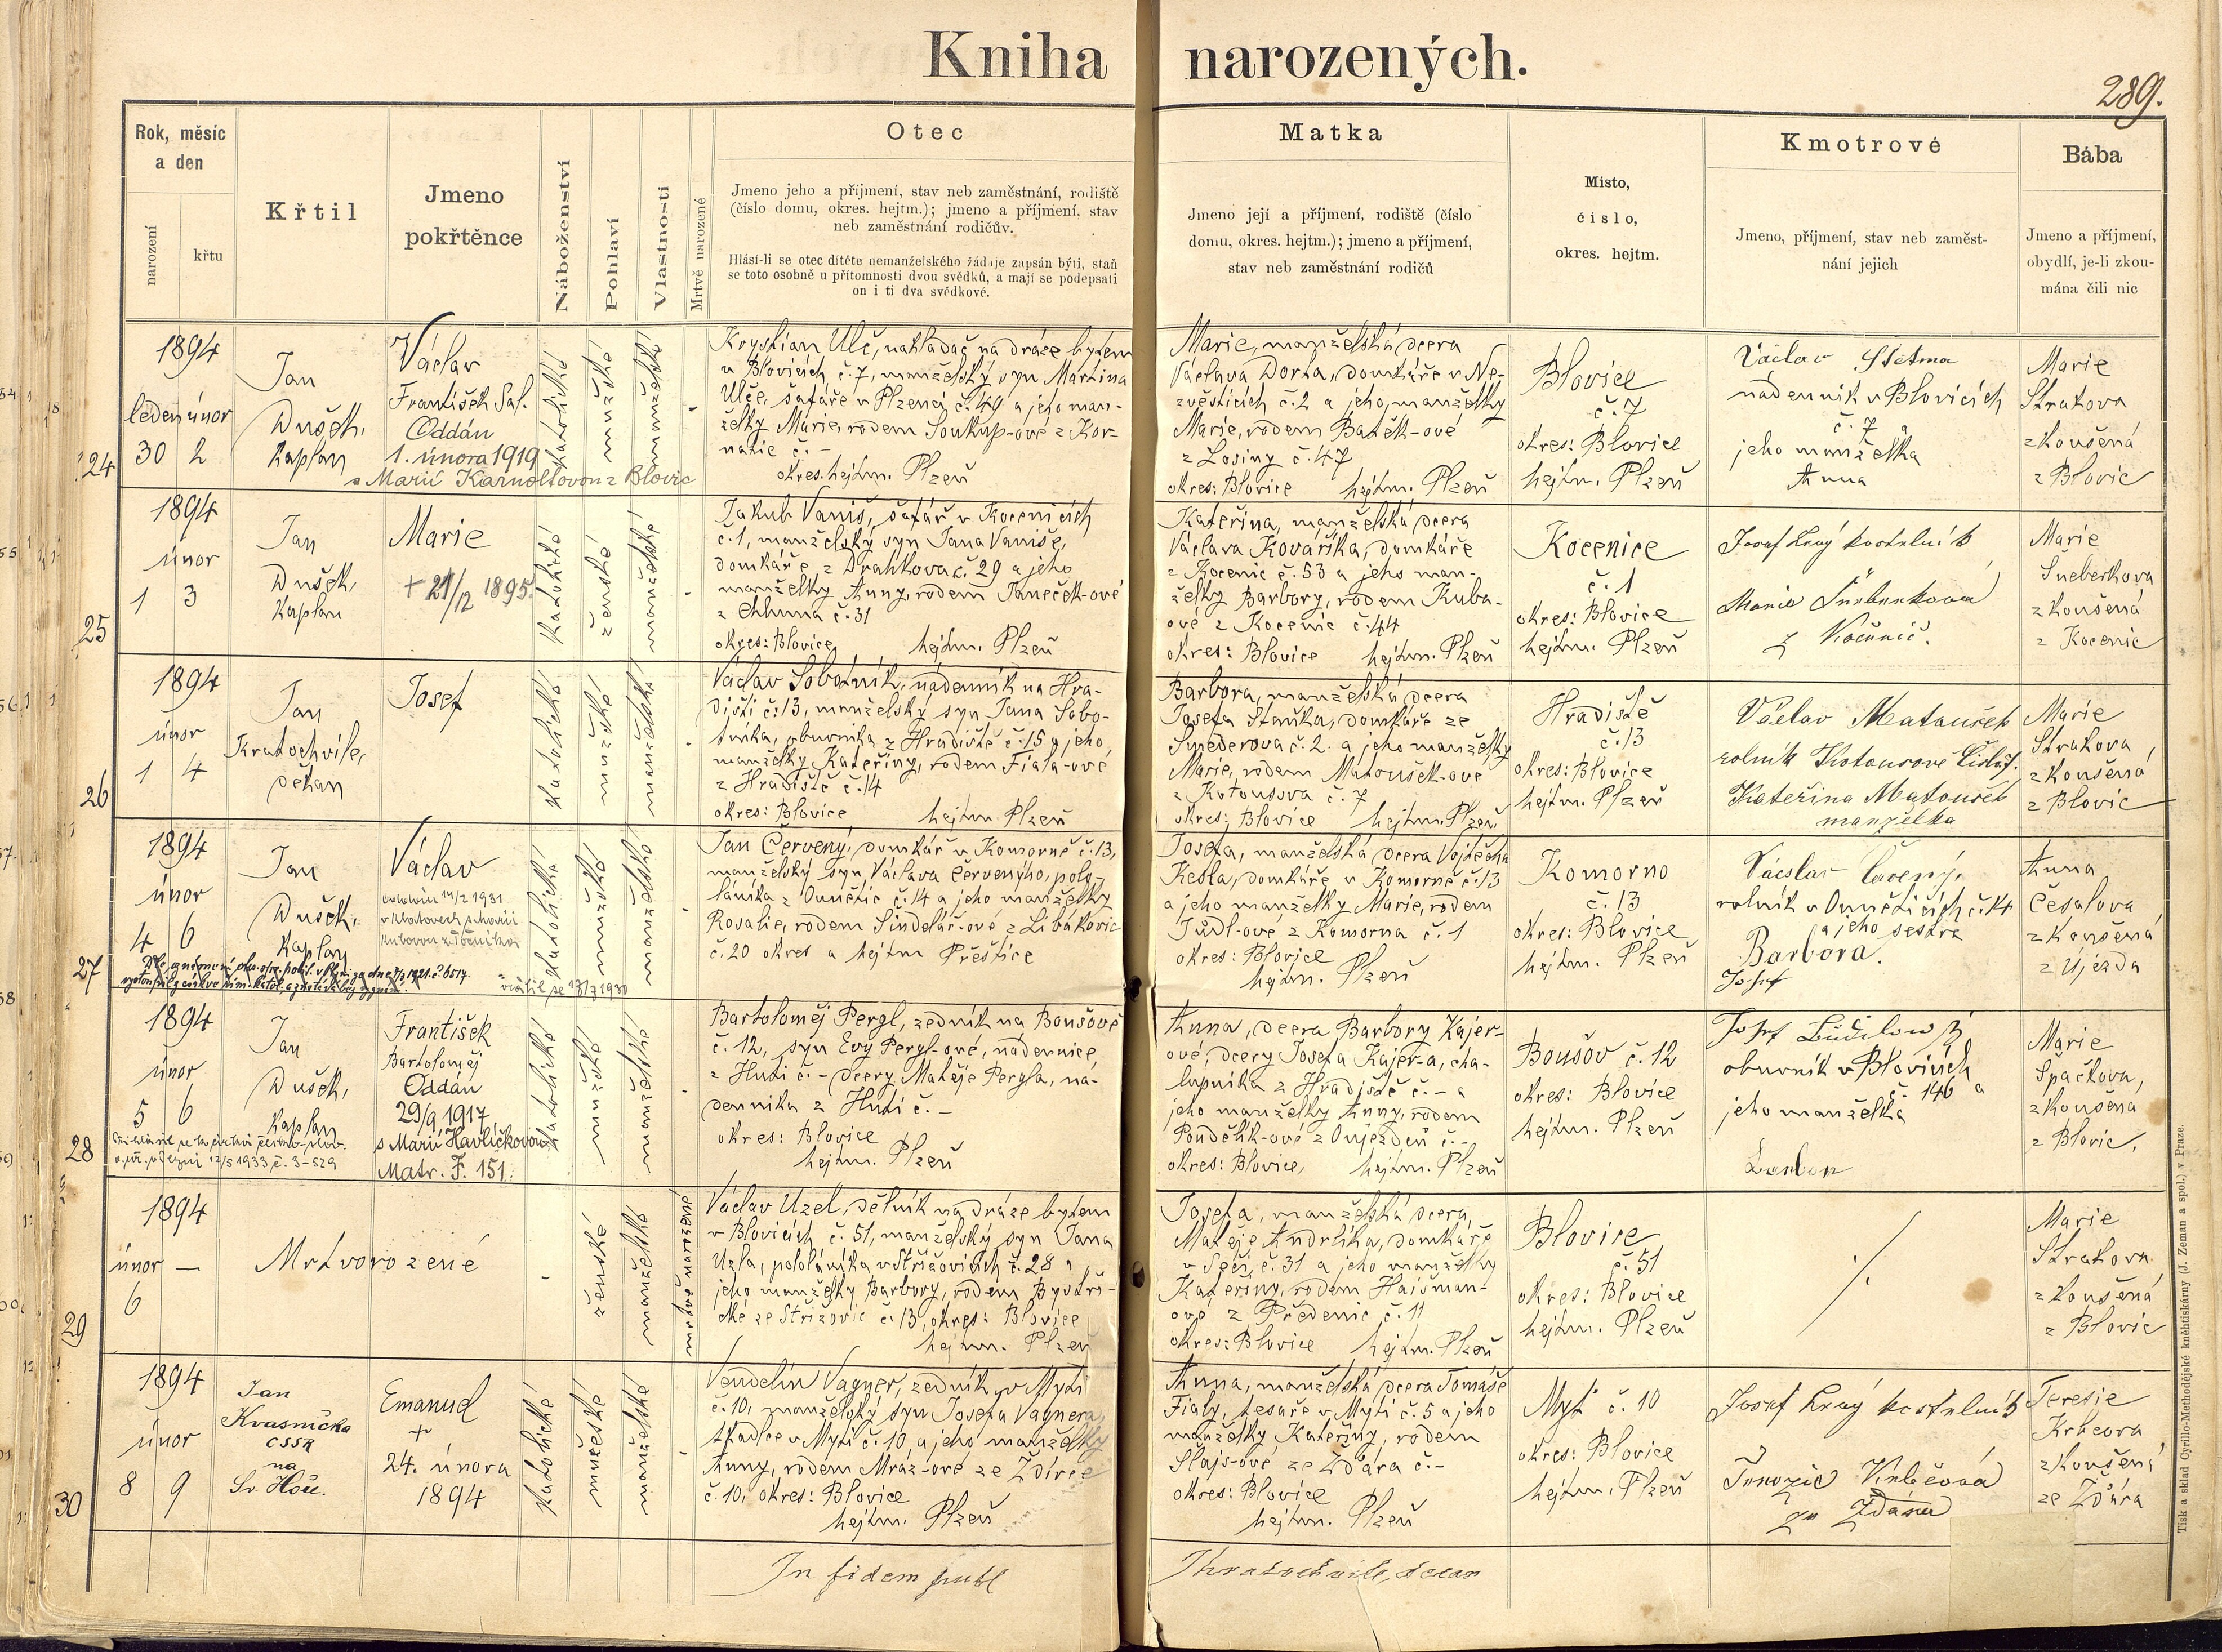 Kniha narozených.
289.
Rok, měsíc
a den
narození
křtu
Křtil
Jmeno
pokřtěnce
Náboženství
Pohlaví
Vlastnosti
Mrtvě narozené
Otec
Jmeno jeho a příjmení, stav neb zaměstnání, rodiště
(číslo domu, okres. hejtm.); jmeno a příjmení, stav
neb zaměstnání rodičův.
Hlásí-li se otec dítěte nemanželského žádaje zapsán býti, staň
se toto osobně u přítomnosti dvou svědků, a mají se podepsati
on i ti dva svědkové.
Matka
Jmeno její a příjmení, rodiště (číslo
domu, okres. hejtm.); jmeno a příjmení,
stav neb zaměstnání rodičů
Misto,
číslo,
okres. hejtm.
Kmotrové
Jmeno, příjmení, stav neb zaměst-
nání jejich
Bába
Jmeno a příjmení,
obydlí, je-li zkou-
mána čili nic
24
1894
leden únor
30 2
Jan
Dušek,
Kaplan
Václav
František Sal.
Oddán
1. února 1919
s Marií Karnoltovou z Blovic
katolické
mužské
manželské
Krystian Ulč, nakladač na dráze bytem
v Blovicích č. 7, manželský syn Martina
Ulče, šafáře v Plzenci č. 49 a jeho man-
želky Marie, rodem Soukup-ové z Kor-
natic č. -
okres. hejtm. Plzeň
Marie, manželská dcera
Václava Dorta, domkáře v Ne-
zvěsticích č. 2 a jeho manželky
Marie, rodem Baték-ové
z Losiny č. 47
okres: Blovice hejtm. Plzeň
Blovice
č. 7
okres: Blovice
hejtm. Plzeň
Václav
nádenník v Blovicích
č. 7 a
jeho manželka
Anna
Marie
Strakova
zkoušená
z Blovic
25
1894
únor
1 3
Jan
Dušek,
Kaplan
Marie
+ 21/12 1895.
katolické
ženské
manželské
Jakub Vaniš, šafář v Kocenicích
č. 1, manželský syn Jana Vaniše,
domkáře z Drahkova č. 29 a jeho
manželky Anny, rodem Janeček-ové
z Chluma č. 31
okres: Blovice, hejtm. Plzeň
Kateřina, manželská dcera
Václava Kovaříka, domkáře
z Kocenic č. 53 a jeho man-
želky Barbory, rodem Kuba-
ové z Kocenic č. 44
okres: Blovice hejtm. Plzeň
Kocenice
č. 1
okres: Blovice
hejtm. Plzeň
Josef Levý kostelník
Marie
z Kocenic.
Marie
Šneberkova
zkoušená
z Kocenic
26
1894
únor
1 4
Jan
Kratochvile,
děkan
Josef
katolické
mužské
manželské
Václav Sobotník, nádenník na Hra-
dišti č. 13, manželský syn Jana Sobo-
tníka, obuvníka z Hradiště č. 15 a jeho
manželky Kateřiny, rodem Fiala-ové
z Hradiště č. 14
okres: Blovice hejtm. Plzeň
Barbora, manželská dcera
Josefa Staňka, domkáře ze
Smederova č. 2. a jeho manželky
Marie, rodem Matoušek-ové
z Kotousova č. 7
okres: Blovice hejtm. Plzeň
Hradiště
č. 13
okres: Blovice
hejtm. Plzeň
Václav Matoušek
rolník Kotousove
Kateřina Matoušek
manželka
Marie
Strakova,
zkoušená
z Blovic
27
1894
únor
4 6
Jan
Dušek,
Kaplan
Václav
14/2 1931
v Klatovech s Marií
katolické
mužské
manželské
Jan Červený, domkář v Komorně č. 13,
manželský syn Václava Červenýho, polo-
láníka z Ounětic č. 14 a jeho manželky
Rosalie, rodem Šindelář-ové z Libákovic
č. 20 okres a hejtm Přeštice
Josefa, manželská dcera Vojtěcha
Kesla, domkáře v Komorně č. 13
a jeho manželky Marie, rodem
Jůdl-ové z Komorna č. 1
okres: Blovice
hejtm. Plzeň
Komorno
č. 13
okres: Blovice
hejtm. Plzeň
Václav Červený,
rolník v Ouněticích č. 14
a jeho sestra
Barbora.
Josef
Anna
Česalova
zkoušená
z Újezda
28
1894
únor
5 6
Jan
Dušek,
Kaplan
František
Bartoloměj
Oddán
29/9 1917
s Marií Havlíčkovou
Matr. F. 151.
12/5 1933, č. 3-529
katolické
mužské
manželské
Bartoloměj Pergl, zedník na Boušově
č. 12, syn Evy Pergl-ové, nádennice,
z Huti č. - dcery Matěje Pergla, ná-
denníka z Huti č. -
okres: Blovice
hejtm. Plzeň
Anna, dcera Barbory Kajer-
ové, dcery Josefa Kajer-a, cha-
lupníka z Hradiště č. - a
jeho manželky Anny, rodem
Ponděllk-ové z Oujezda č. -
okres: Blovice, hejtm. Plzeň
Boušov č. 12
okres: Blovice
hejtm. Plzeň
Josef
obuvník v Blovicích
č. 146 a
jeho manželka
Marie
Špačkova,
zkoušená
z Blovic.
29
1894
únor —
6
Mrtvorozené
ženské
manželské
mrtvě narozené
Václav Uzel, dělník na dráze bytem
v Blovicích č. 51, manželský syn Jana
Uzla, pololáníka v Střížovicích č. 28 a
jeho manželky Barbory, rodem Bystři-
cké ze Střížovic č. 13, okres: Blovice
hejtm. Plzeň
Josefa, manželská dcera
Matěje Andrlíka, domkáře
v Seči č. 31 a jeho manželky
Kateřiny, rodem Hajšman-
ové z Předenic č. 11
okres: Blovice hejtm. Plzeň
Blovice
č. 51
okres: Blovice
hejtm. Plzeň
Marie
Strakova
zkoušená
z Blovic
30
1894
únor
8 9
Jan
Kvasnička
CSSR
na
Sv. Hoře.
Emanuel
+
24. února
1894
katolické
mužské
manželské
Vendelín Vagner, zedník v Mýti
č. 10, manželský syn Josefa Vagnera,
tkadlce v Mýti č. 10, a jeho manželky
Anny, rodem Mráz-ové ze Ždírce
č. 10, okres: Blovice
hejtm. Plzeň
Anna, manželská dcera Tomáše
Fialy, tesaře v Mýti č. 5 a jeho
manželky Kateřiny, rodem
Šlajs-ové ze Žďára č. -
okres: Blovice
hejtm. Plzeň
Mýť č. 10
okres: Blovice
hejtm. Plzeň
Josef Levý kostelník
ze Ždáru
Teresie
Krbcova
zkoušená
ze Žďára
In fidem publ
Jkratochvile, decan
Tisk a sklad Cyrillo-Methodějské knihtiskárny (J. Zeman a spol.) v Praze.